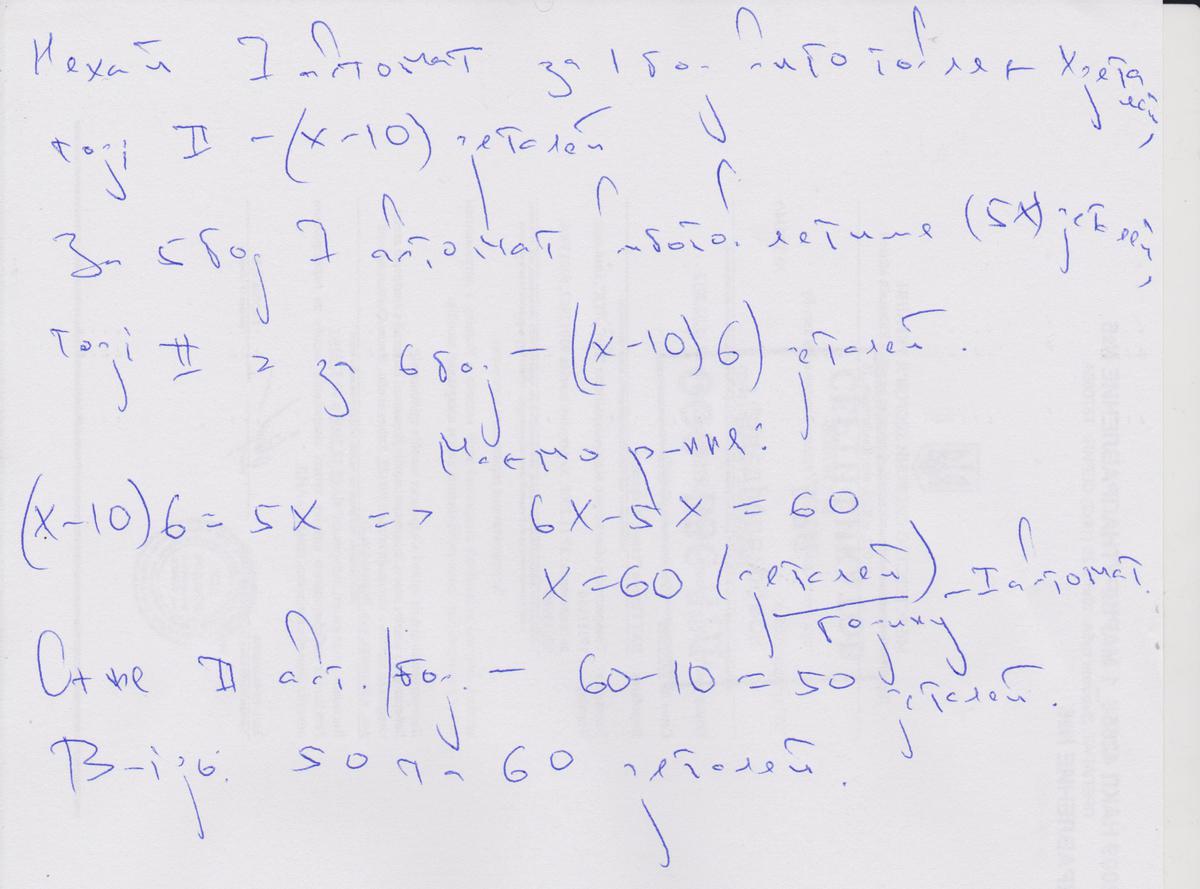 Нехай I автомат за 1 год. виготовляє x деталей,
тоді II – (x–10) деталей
За 5 год I автомат виготовлятиме (5x) деталей,
тоді II за 6 год – ((x–10)6) деталей.
Маємо р-ння:
(x–10)6 = 5x => 6x–5x = 60
x=60 (деталей/годину) – I автомат.
Отже II авт./год. – 60–10 = 50 деталей.
В-ідь: 50 та 60 деталей.